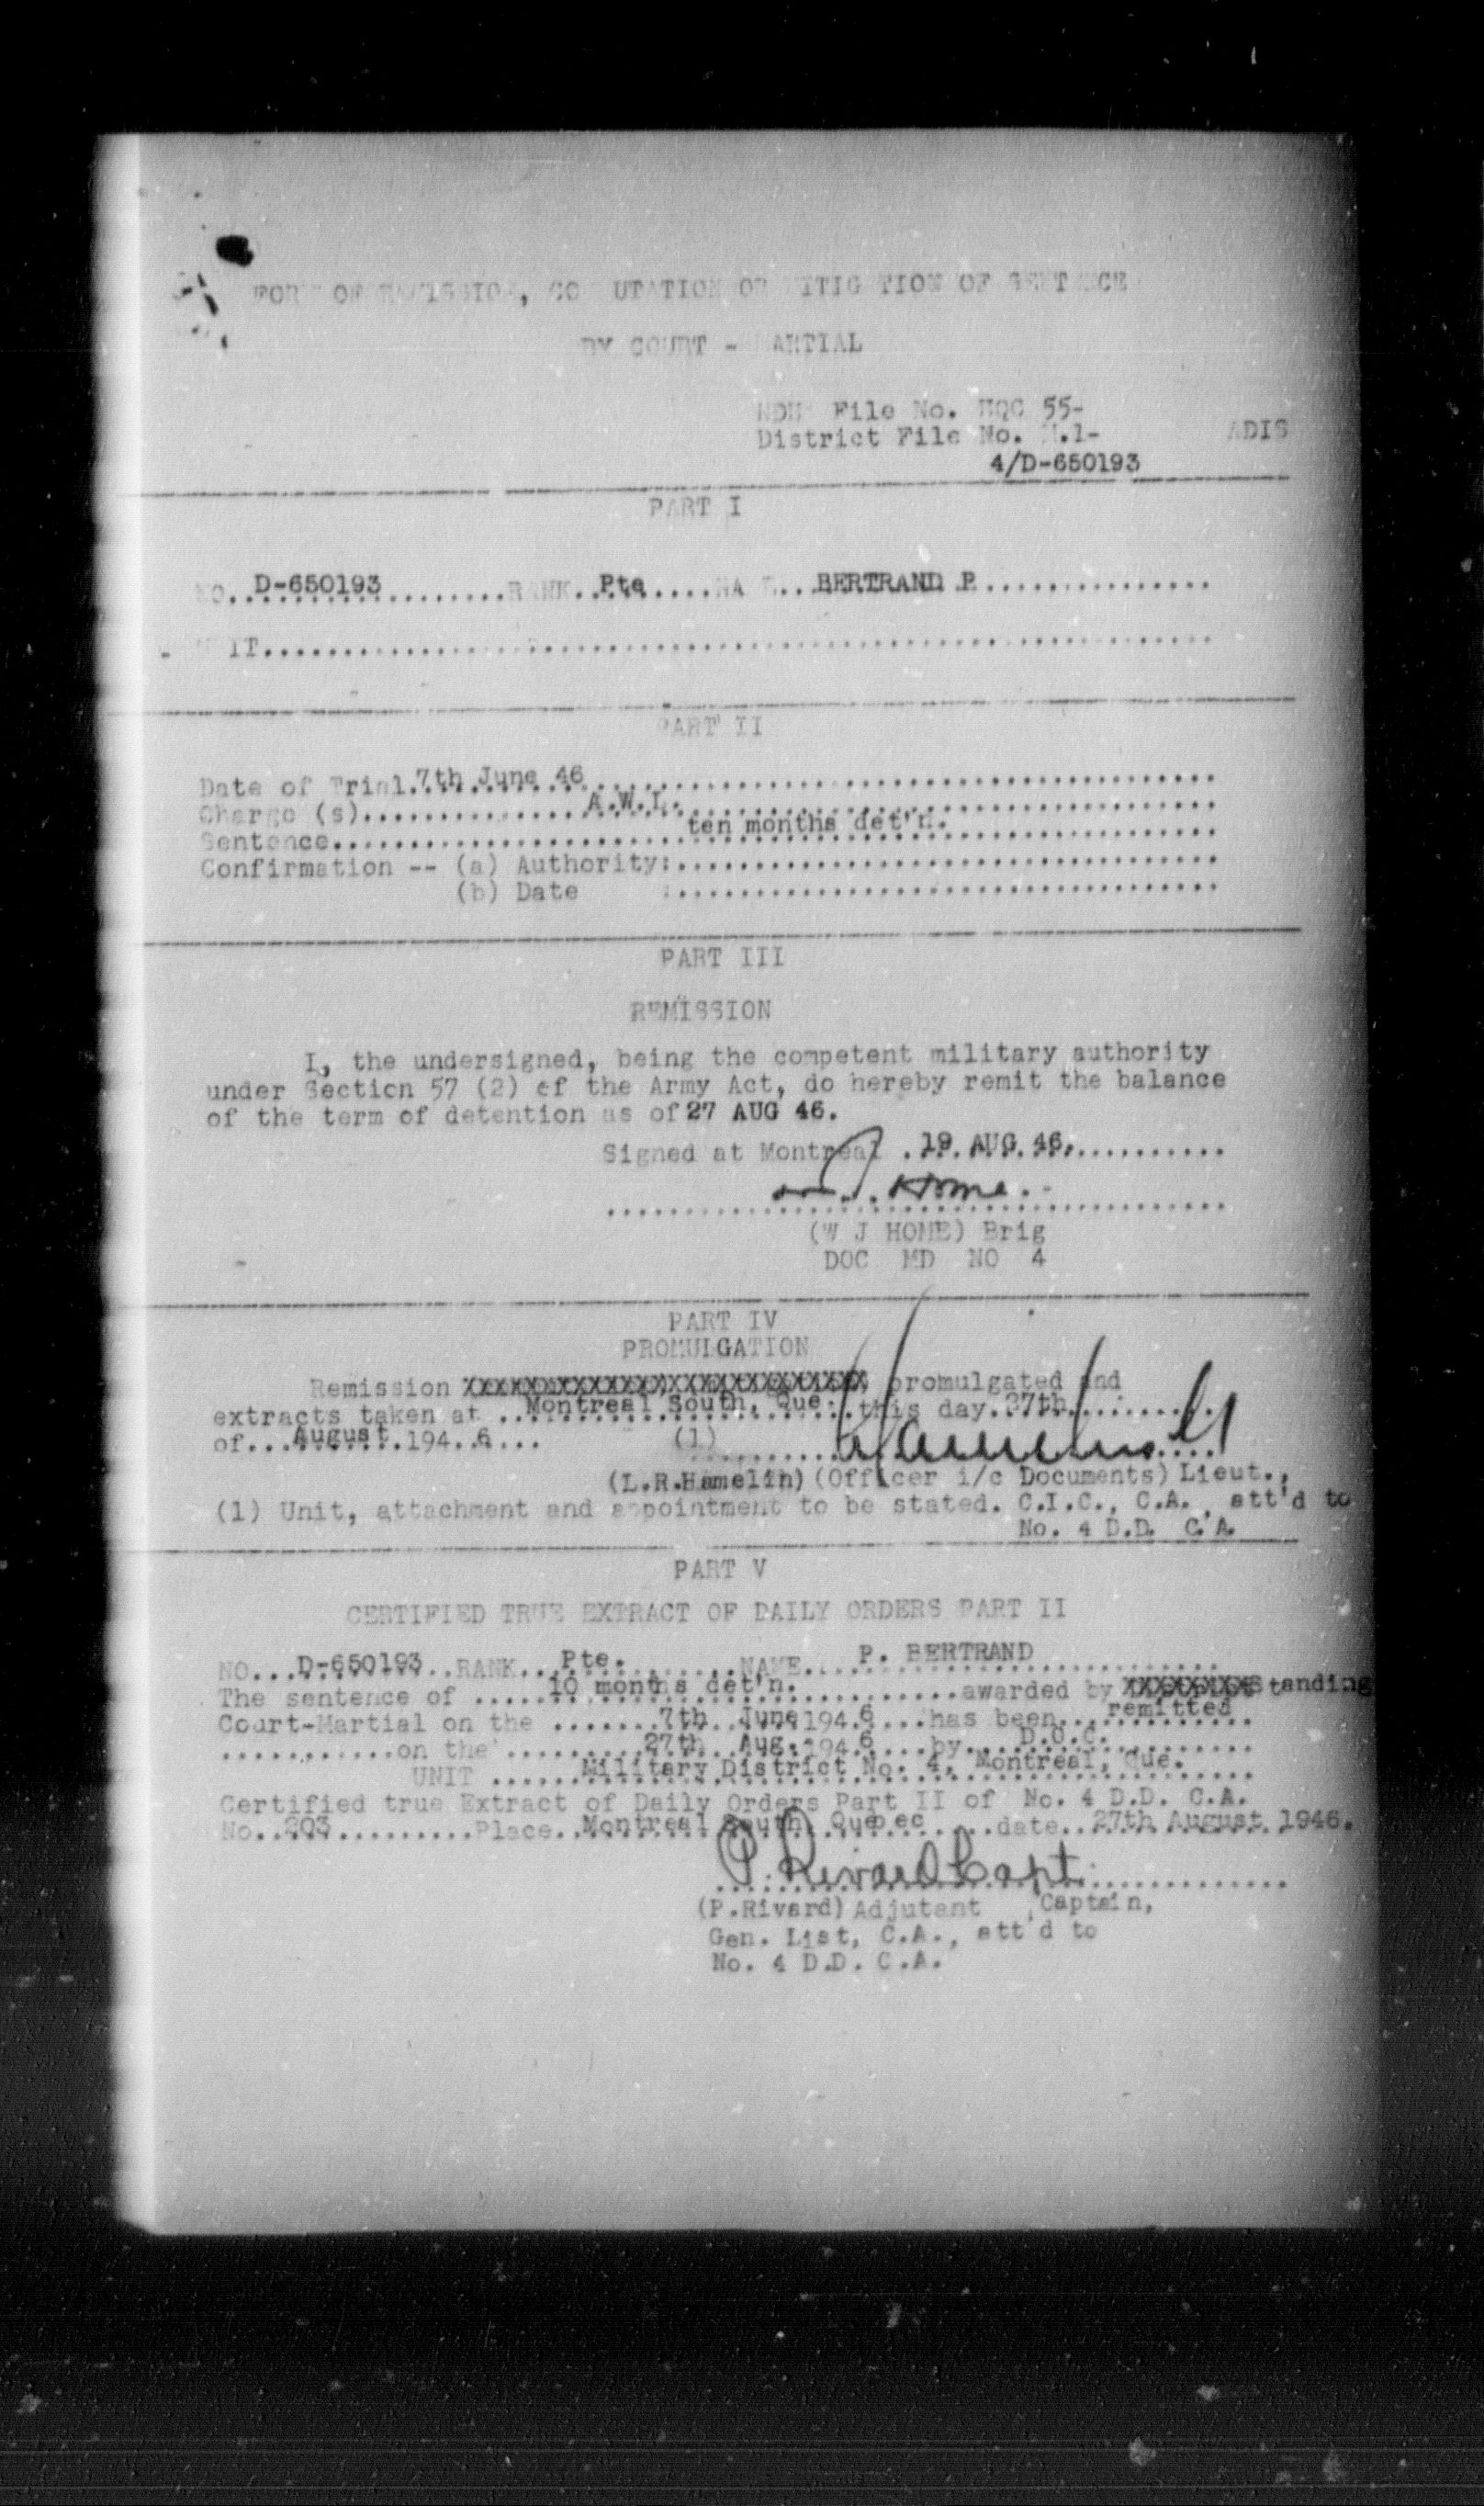 FORM OF REMISSION, COMMUTATION OR MITIGATION OF SENTENCE
BY COURT - MARTIAL
NDHQ File No. HQC 55-
District File No. M.1- ADIS
4/D-650193
PART I
NO...D-650193.........RANK..Pte.....NAME...BERTRAND P...............
UNIT............................................................
PART II
Date of Trial.7th June 46........................................
Charge (s)...............A.W.L...................................
Sentence.......................ten months det'n..................
Confirmation -- (a) Authority:...................................
(b) Date :...................................
PART III
REMISSION
I, the undersigned, being the competent military authority
under Section 57 (2) of the Army Act, do hereby remit the balance
of the term of detention as of 27 AUG 46.
Signed at Montreal .19 AUG 46...........
W. J. Home.
(W J HOME) Brig
DOC MD NO 4
PART IV
PROMULGATION
Remission XXXXXXXXXXXXXXXXXXXXXXXXXX promulgated and
extracts taken at ..Montreal South, Que...this day..27th.........
of...August.194..6.... (1)..............................
(L.R.Hamelin) (Officer i/c Documents) Lieut.,
(1) Unit, attachment and appointment to be stated. C.I.C., C.A., att'd to
No. 4 D.D. C.A.
PART V
CERTIFIED TRUE EXTRACT OF DAILY ORDERS PART II
NO...D-650193..RANK...Pte........NAME....P. BERTRAND............
The sentence of .....10 months det'n...........awarded by XXXXXXXXStanding
Court-Martial on the .......7th..June.194.6....has been...remitted..
...........on the.........27th..Aug.194.6....by....D.O.C..........
UNIT ......Military District No. 4, Montreal, Que.....
Certified true Extract of Daily Orders Part II of No. 4 D.D. C.A.
No..203.........Place..Montreal South, Quebec.....date..27th August 1946.
P. Rivard Capt.
(P.Rivard) Adjutant Captain,
Gen. List, C.A., att'd to
No. 4 D.D. C.A.